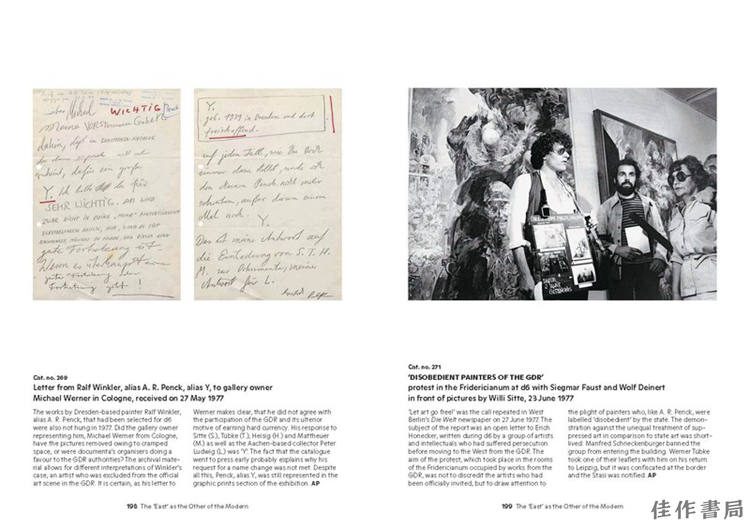 lieber Michael WICHTIG Penck
Y. Ich
SEHR WICHTIG. DAS WIRD
gute Fortsetzung ist.
Wenn es überhaupt eine
gute
Fortsetzung gibt!
Y.
geb. 1939 in Dresden und dort
freischaffend.
auf jeden Fall, wie Du Dich
immer dazu
den Namen Penck nicht mehr
Y.
Das ist meine Antwort auf
die Einladung von S. T. H.
M. zur Dokumenta, meine
Antwort für L.
Cat. no. 269
Letter from Ralf Winkler, alias A. R. Penck, alias Y, to gallery owner
Michael Werner in Cologne, received on 27 May 1977
The works by Dresden-based painter Ralf Winkler,
alias A. R. Penck, that had been selected for d6
were also not hung in 1977. Did the gallery owner
representing him, Michael Werner from Cologne,
have the pictures removed owing to cramped
space, or were documenta's organisers doing a
favour to the GDR authorities? The archival mate-
rial allows for different interpretations of Winkler's
case, an artist who was excluded from the official
art scene in the GDR. It is certain, as his letter to
Werner makes clear, that he did not agree with
the participation of the GDR and its ulterior
motive of earning hard currency. His response to
Sitte (S.), Tübke (T.), Heisig (H.) and Mattheuer
(M.) as well as the Aachen-based collector Peter
Ludwig (L.) was 'Y'. The fact that the catalogue
went to press early probably explains why his
request for a name change was not met. Despite
all this, Penck, alias Y, was still represented in the
graphic prints section of the exhibition. AP
198 The 'East' as the Other of the Modern
Cat. no. 271
'DISOBEDIENT PAINTERS OF THE GDR'
protest in the Fridericianum at d6 with Siegmar Faust and Wolf Deinert
in front of pictures by Willi Sitte, 23 June 1977
'Let art go free!' was the call repeated in West
Berlin's Die Welt newspaper on 27 June 1977. The
subject of the report was an open letter to Erich
Honecker, written during d6 by a group of artists
and intellectuals who had suffered persecution
before moving to the West from the GDR. The
aim of the protest, which took place in the rooms
of the Fridericianum occupied by works from the
GDR, was not to discredit the artists who had
been officially invited, but to draw attention to
the plight of painters who, like A. R. Penck, were
labelled 'disobedient' by the state. The demon-
stration against the unequal treatment of sup-
pressed art in comparison to state art was short-
lived: Manfred Schneckenburger banned the
group from entering the building. Werner Tübke
took one of their leaflets with him on his return
to Leipzig, but it was confiscated at the border
and the Stasi was notified. AP
199 The 'East' as the Other of the Modern
佳作書局